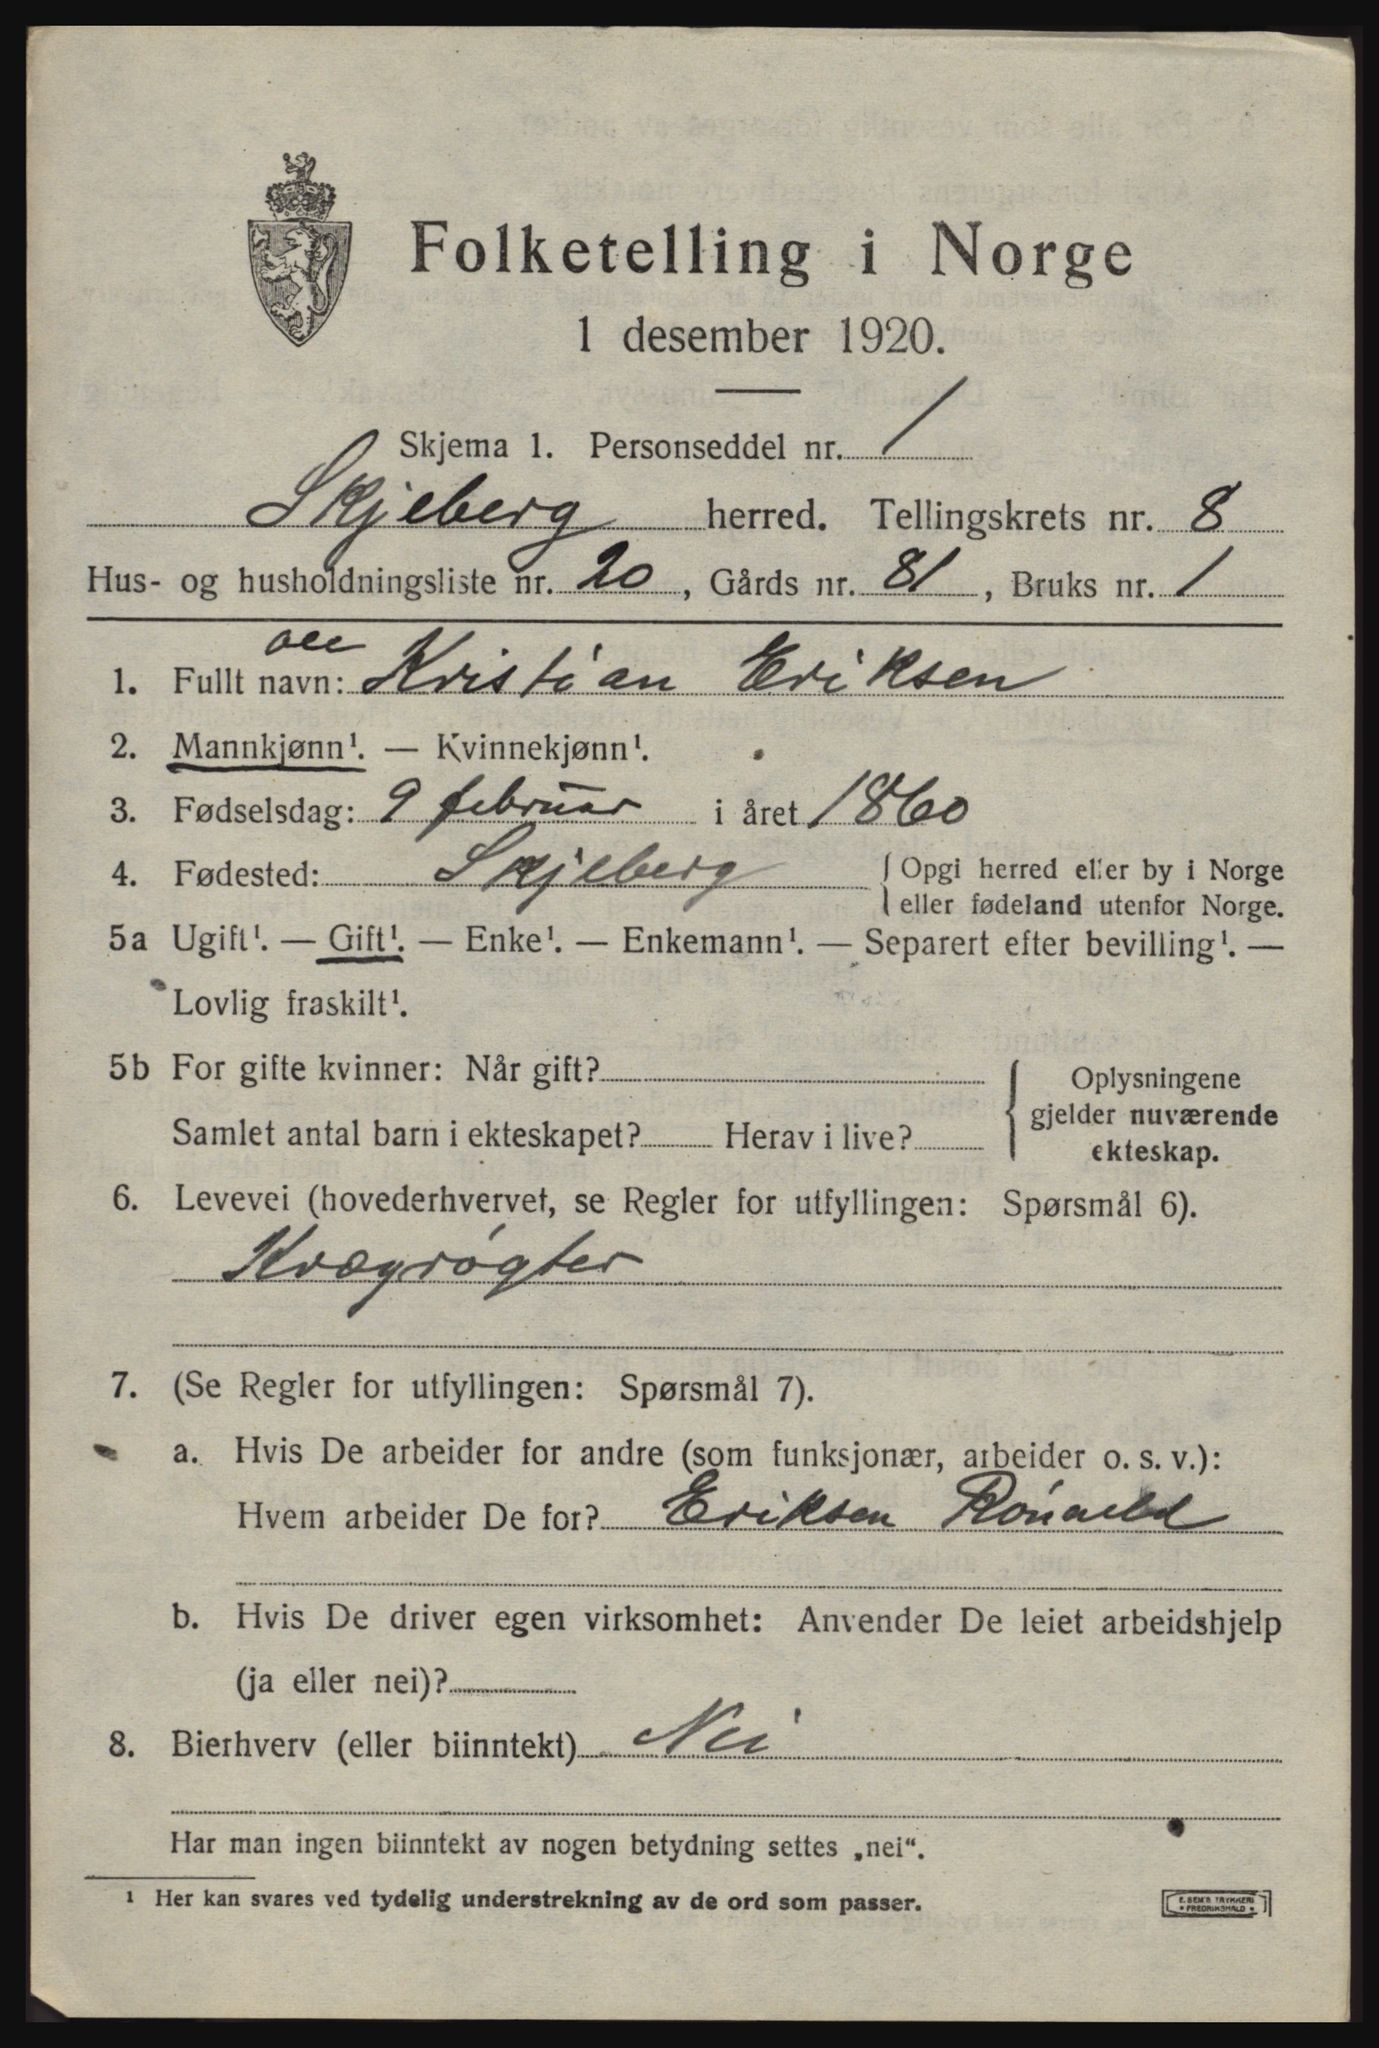 Folketelling i Norge
1 desember 1920.
Skjema 1. Personseddel nr. 1
Skjeberg herred. Tellingskrets nr. 8
Hus- og husholdningsliste nr. 20, Gårds nr. 81, Bruks nr. 1
Ole
1. Fullt navn: Kristian Eriksen
2. Mannkjønn¹. — Kvinnekjønn¹.
3. Fødselsdag: 9 februar i året 1860
4. Fødested: Skjeberg { Opgi herred eller by i Norge
eller fødeland utenfor Norge.
5a Ugift¹. — Gift¹. — Enke¹. — Enkemann¹. — Separert efter bevilling¹. —
Lovlig fraskilt¹.
5b For gifte kvinner: Når gift? { Oplysningene
gjelder nuværende
Samlet antal barn i ekteskapet? Herav i live?
ekteskap.
6. Levevei (hovederhvervet, se Regler for utfyllingen: Spørsmål 6).
Kvægrøgter
7. (Se Regler for utfyllingen: Spørsmål 7).
a. Hvis De arbeider for andre (som funksjonær, arbeider o. s. v.):
Hvem arbeider De for? Eriksen
b. Hvis De driver egen virksomhet: Anvender De leiet arbeidshjelp
(ja eller nei)?
8. Bierhverv (eller biinntekt) Nei
Har man ingen biinntekt av nogen betydning settes „nei“.
¹ Her kan svares ved tydelig understrekning av de ord som passer.
E. SEM'S TRYKKERI
* FREDRIKSHALD *